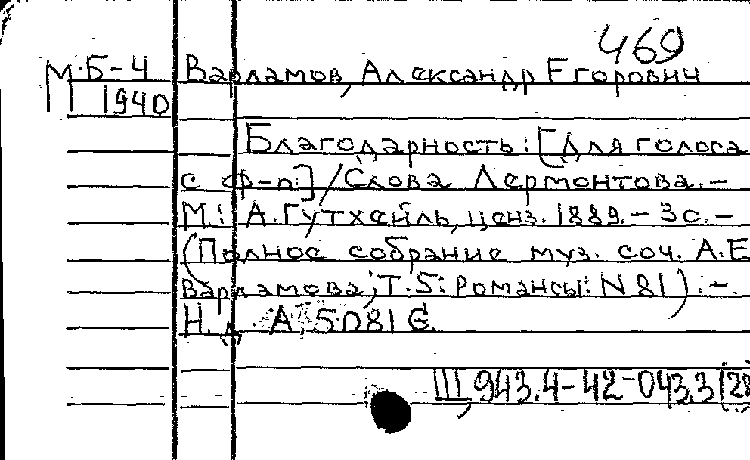 469
М.Б-4 Варламов, Александр Егорович
М 1940
Благодарность: [Для голоса
с ф-п.] / Слова Лермонтова. –
М.: А. Гутхейль, ценз. 1889. – 3с. –
(Полное собрание муз. соч. А.Е
Варламова; Т.5: Романсы: N 81). –
Н.д. А.5081 Є.
Щ943.4-42-043.3(28